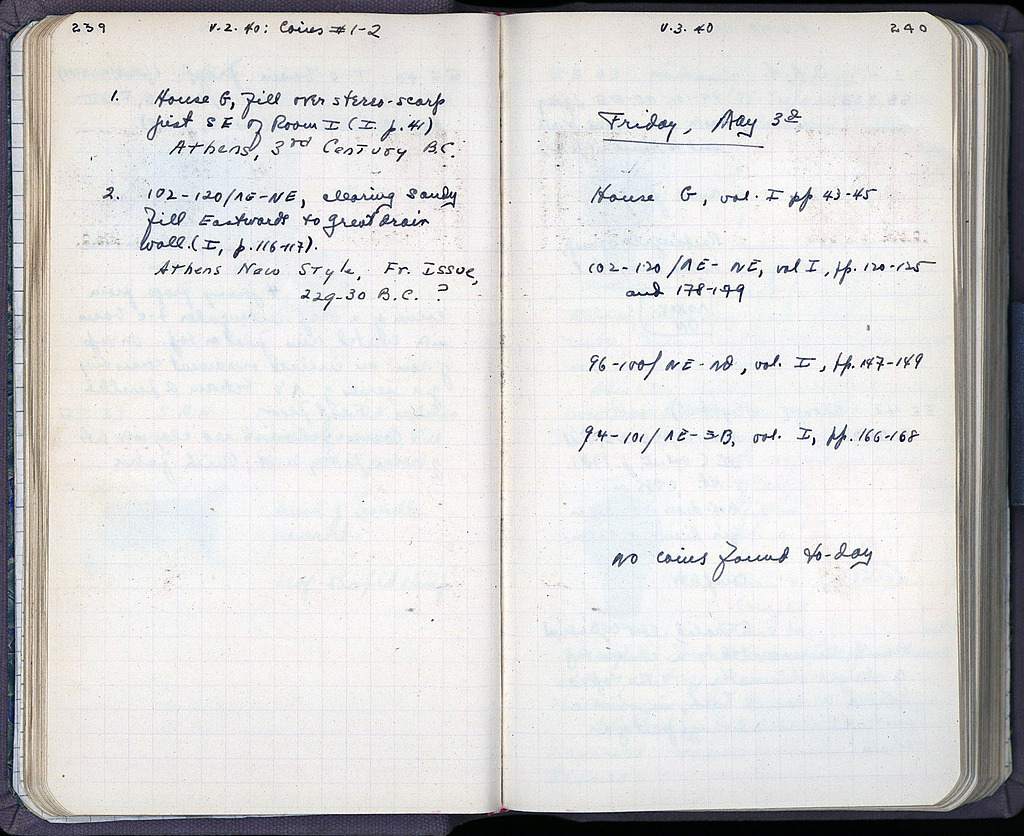 239
V.2.40: Coins #1-2
1. House G, fill over stereo-scarp
just SE of Room I (I. p. 41)
Athens, 3rd Century B.C.
2. 102-120/ΛE-NE, clearing sandy
fill Eastwards to great drain
wall. (I, p. 116-117).
Athens New Style, Fr. Issue,
229-30 B.C. ?
V.3.40
240
Friday, May 3d
House G, vol. I pp 43-45
102-120/ΛE-NE, vol I, pp. 120-125
and 178-179
96-100/ NE-, vol. I, pp. 147-149
94-101/ ΛE-, vol. I, pp. 166-168
No coins found to-day